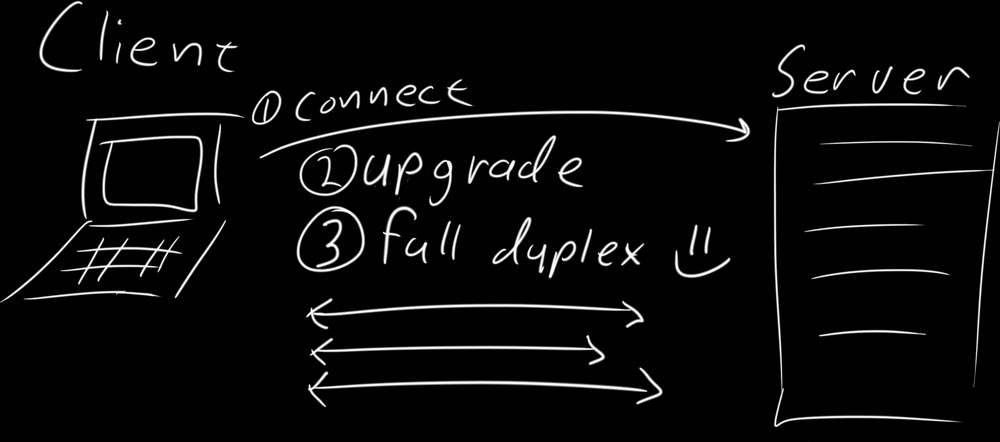 Client
Server
① connect
② upgrade
③ full duplex